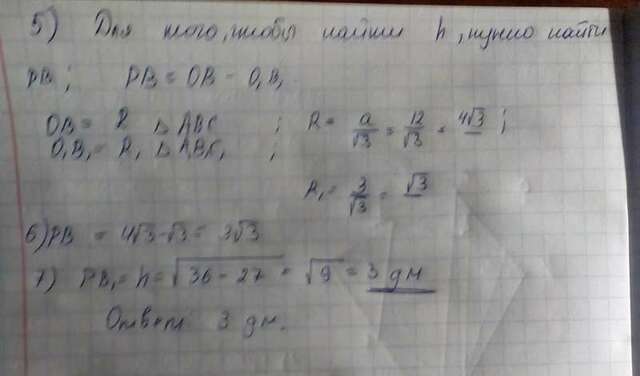 5) Для того, чтобы найти h, нужно найти
PB; PB = OB - O₁B₁
OB = R △ABC; R = a/√3 = 12/√3 = 4√3;
O₁B₁ = R₁ △ABC₁;
R₁ = 3/√3 = √3
6) PB = 4√3-√3 = 3√3
7) PB₁ = h = √(36-27) = √9 = 3 дм
Ответ: 3 дм.